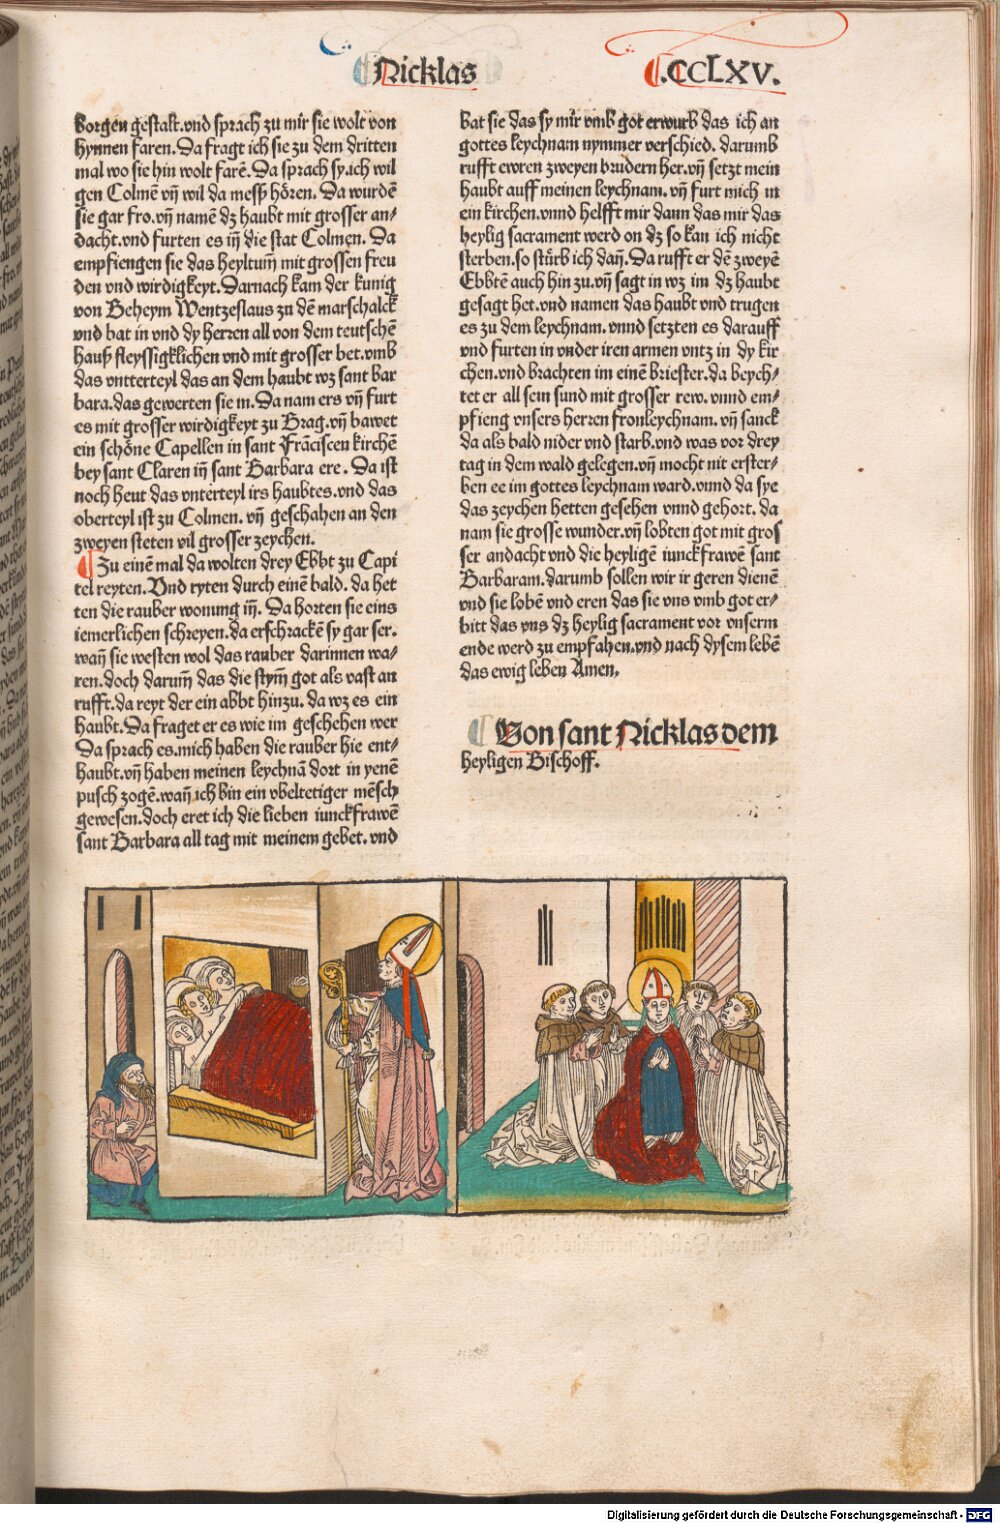 Nicklas
.CCLXV.
borgen gestalt.vnd sprach zu mir sie wolt von
hynnen faren. Da fragt ich sie zu dem dritten
mal wo sie hin wolt farē. Da sprach sy.ich wil
gen Colmē vn̄ wil da mesß hören. Da wurdē
sie gar fro.vn̄ namē dz haubt mit grosser an/
dacht.vnd furten es in̄ die stat Colmen. Da
empfiengen sie das heyltum̄ mit grossen freu
den vnd wirdigkeyt. Darnach kam der kunig
von Beheym Wentzeslaus zu dē marschalck
vnd bat in vnd dy herren all von dem teutschē
hauß fleyssigklichen vnd mit grosser bet.vmb
das vntterteyl das an dem haubt wz sant bar
bara.das gewerten sie in. Da nam ers vn̄ furt
es mit grosser wirdigkeyt zu Brag.vn̄ bawet
ein schöne Capellen in sant Frāciscen kirchē
bey sant Claren in̄ sant Barbara ere. Da ist
noch heut das vnterteyl irs haubtes.vnd das
oberteyl ist zu Colmen. vn̄ geschahen an den
zweyen steten vil grosser zeychen.
Zu einē mal da wolten drey Ebbt zu Capi
tel reyten. Vnd ryten durch einē bald. da het
ten die rauber wonung in̄. Da horten sie eins
iemerlichen schreyen.da erschrackē sy gar ser.
wan̄ sie westen wol das rauber darinnen wa/
ren.doch darum̄ das die stym̄ got als vast an
rufft.da reyt der ein abbt hinzu. da wz es ein
haubt. Da fraget er es wie im geschehen wer
Da sprach es.mich haben die rauber hie ent/
haubt.vn̄ haben meinen leychnā dort in yenē
pusch zogē.wan̄ ich bin ein vbeltetiger mēsch
gewesen.doch eret ich die lieben iunckfrawē
sant Barbara all tag mit meinem gebet. vnd
bat sie das sy mir vmb got erwurb das ich an
gottes leychnam nymmer verschied. darumb
rufft ewren zweyen brudern her.vn̄ setzt mein
haubt auff meinen leychnam. vn̄ furt mich in
ein kirchen.vnnd helfft mir dann das mir das
heylig sacrament werd on dz so kan ich nicht
sterben.so stürb ich dan̄. Da rufft er dē zweyē
Ebbtē auch hin zu.vn̄ sagt in wz im dz haubt
gesagt het.vnd namen das haubt vnd trugen
es zu dem leychnam.vnnd setzten es darauff
vnd furten in vnder iren armen vntz in dy kir
chen.vnd brachten im einē briester.da beych/
tet er all sein sund mit grosser rew.vnnd em/
pfieng vnsers herren fronleychnam. vn̄ sanck
da als bald nider vnd starb.vnd was vor drey
tag in dem wald gelegen.vn̄ mocht nit erster/
ben ee im gottes leychnam ward.vnnd da sye
das zeychen hetten gesehen vnnd gehort. da
nam sie grosse wunder.vn̄ lobten got mit gros
ser andacht vnd die heyligē iunckfrawē sant
Barbaram.darumb sollen wir ir geren dienē
vnd sie lobē vnd eren das sie vns vmb got er/
bitt das vns dz heylig sacrament vor vnserm
ende werd zu empfahen.vnd nach dysem lebē
das ewig leben Amen.
Von sant Nicklas dem
heyligen Bischoff.
Digitalisierung gefördert durch die Deutsche Forschungsgemeinschaft - DFG